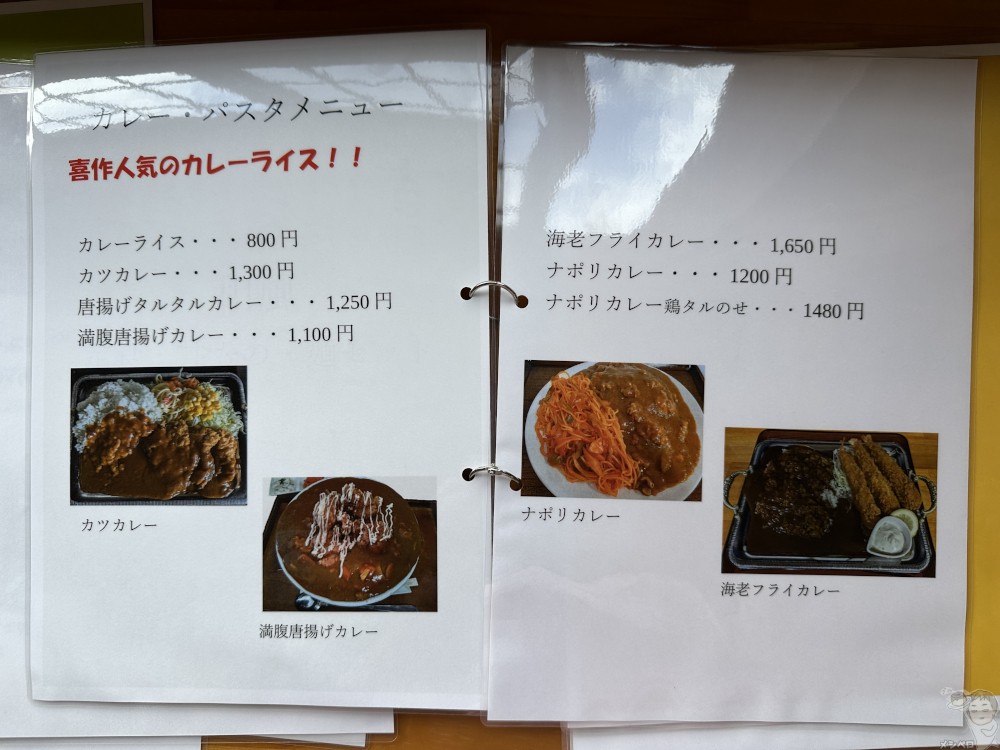 カレー・パスタメニュー
喜作人気のカレーライス！！
カレーライス・・・800円
カツカレー・・・1,300円
唐揚げタルタルカレー・・・1,250円
満腹唐揚げカレー・・・1,100円
カツカレー
満腹唐揚げカレー
海老フライカレー・・・1,650円
ナポリカレー・・・1200円
ナポリカレー鶏タルのせ・・・1480円
ナポリカレー
海老フライカレー